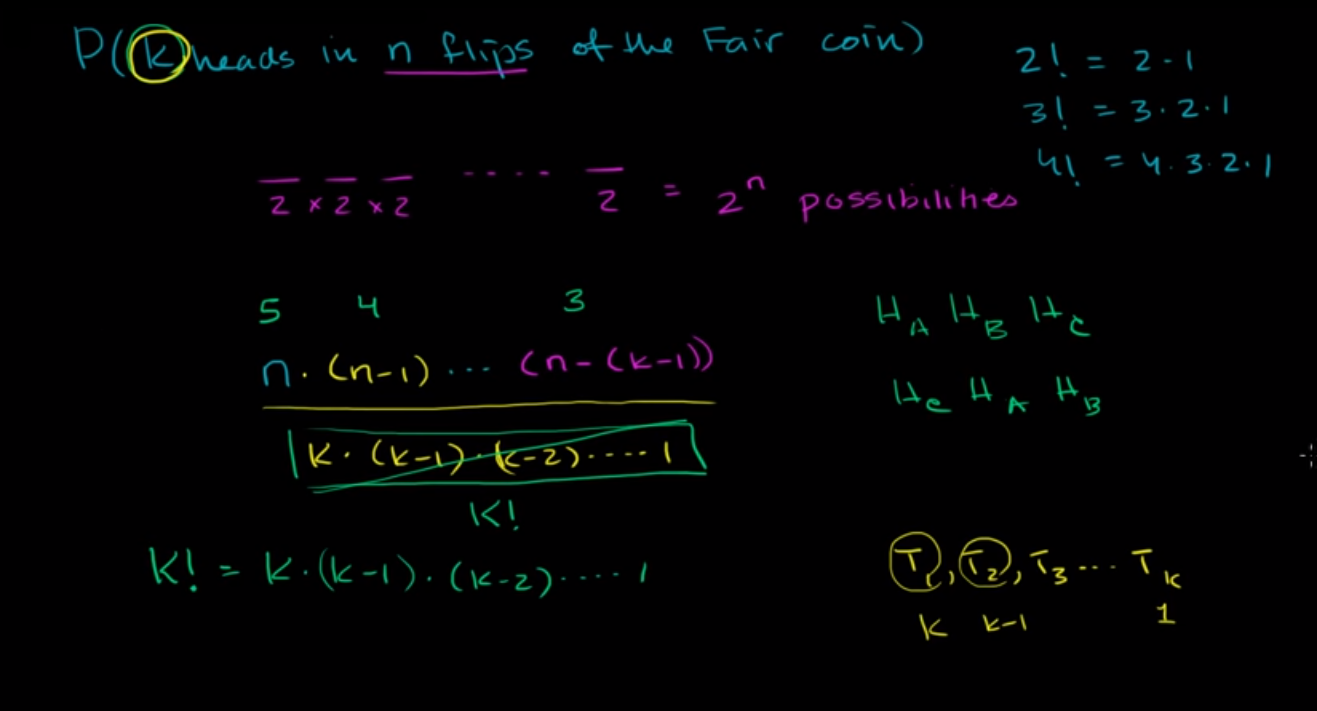 P(k heads in n flips of the Fair coin)
2! = 2·1
3! = 3·2·1
4! = 4·3·2·1
2 × 2 × 2 ····· 2 = 2ⁿ possibilities
5 4 3
n·(n-1)···(n-(k-1))
k·(k-1)·(k-2)·····1
K!
K! = K·(k-1)·(k-2)·····1
H_A H_B H_C
H_C H_A H_B
T₁, T₂, T₃ ··· T_k
k k-1 1